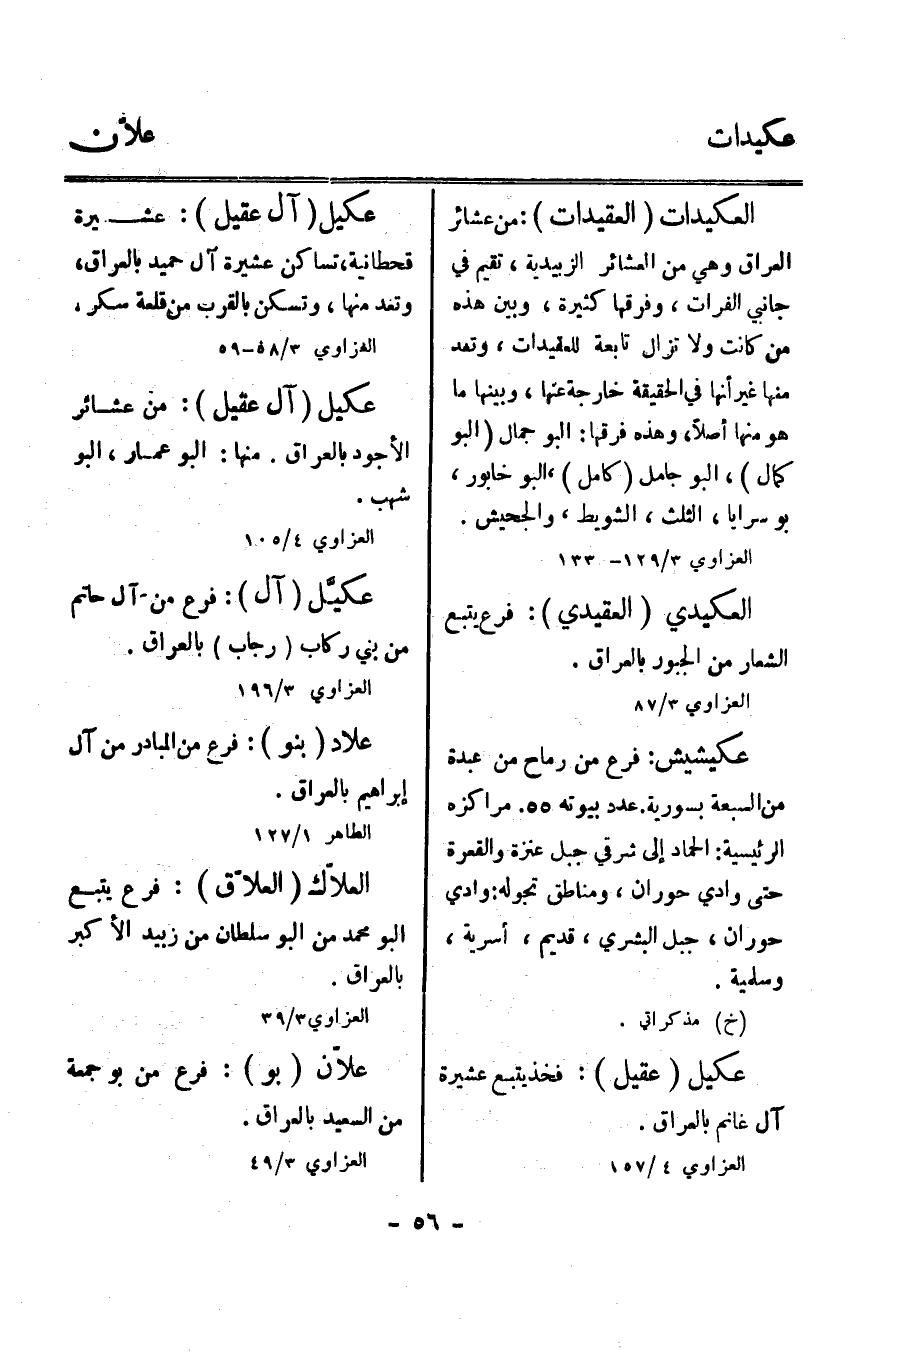 عكيدات
علاّن
العكيدات ( العقيدات ) : من عشائر
العراق وهي من العشائر الزبيدية ، تقيم في
جانبي الفرات ، وفرقها كثيرة ، وبين هذه
من كانت ولا تزال تابعة للعقيدات ، وتعد
منها غير أنها في الحقيقة خارجة عنها ، وبينها ما
هو منها أصلاً، وهذه فرقها : البو جمال ( البو
كمال ) ، البو جامل ( كامل ) ، البو خابور ،
بو سرايا ، الثلث ، الشويط ، والجحيش .
العزاوي ٣/١٢٩ – ١٣٣
العكيدي ( العقيدي ) : فرع يتبع
الشعار من الجبور بالعراق .
العزاوي ٣/٨٧
عكيشيش : فرع من رماح من عبدة
من السبعة بسورية. عدد بيوته ٥٥. مراكزه
الرئيسية : الحماد إلى شرقي جبل عنزة والقعرة
حتى وادي حوران ، ومناطق تجوله : وادي
حوران ، جبل البشري ، قديم ، أسرية ،
وسلمية .
(خ) مذكراتي .
عكيل ( عقيل ) : فخذ يتبع عشيرة
آل غانم بالعراق .
العزاوي ٤/١٥٧
عكيل ( آل عقيل ) : عشـــيرة
قحطانية، تساكن عشيرة آل حميد بالعراق،
وتعد منها ، وتسكن بالقرب من قلعة سكر .
العزاوي ٣/٥٨–٥٩
عكيل ( آل عقيل ) : من عشــائر
الأجود بالعراق . منها : البو عمــار ، البو
شهب .
العزاوي ٤/١٠٥
عكيّل ( آل ) : فرع من آل حاتم
من بني ركاب ( رجاب ) بالعراق .
العزاوي ٣/١٩٦
علاد ( بنو ) : فرع من المبادر من آل
إبراهيم بالعراق .
الطاهر ١/١٢٧
العلاّك ( العلاّق ) : فرع يتبــع
البو محمد من البو سلطان من زبيد الأكبر
بالعراق .
العزاوي ٣/٣٩
علاّن ( بو ) : فرع من بو جمعة
من السعيد بالعراق .
العزاوي ٣/٤٩
- ٥٦ -